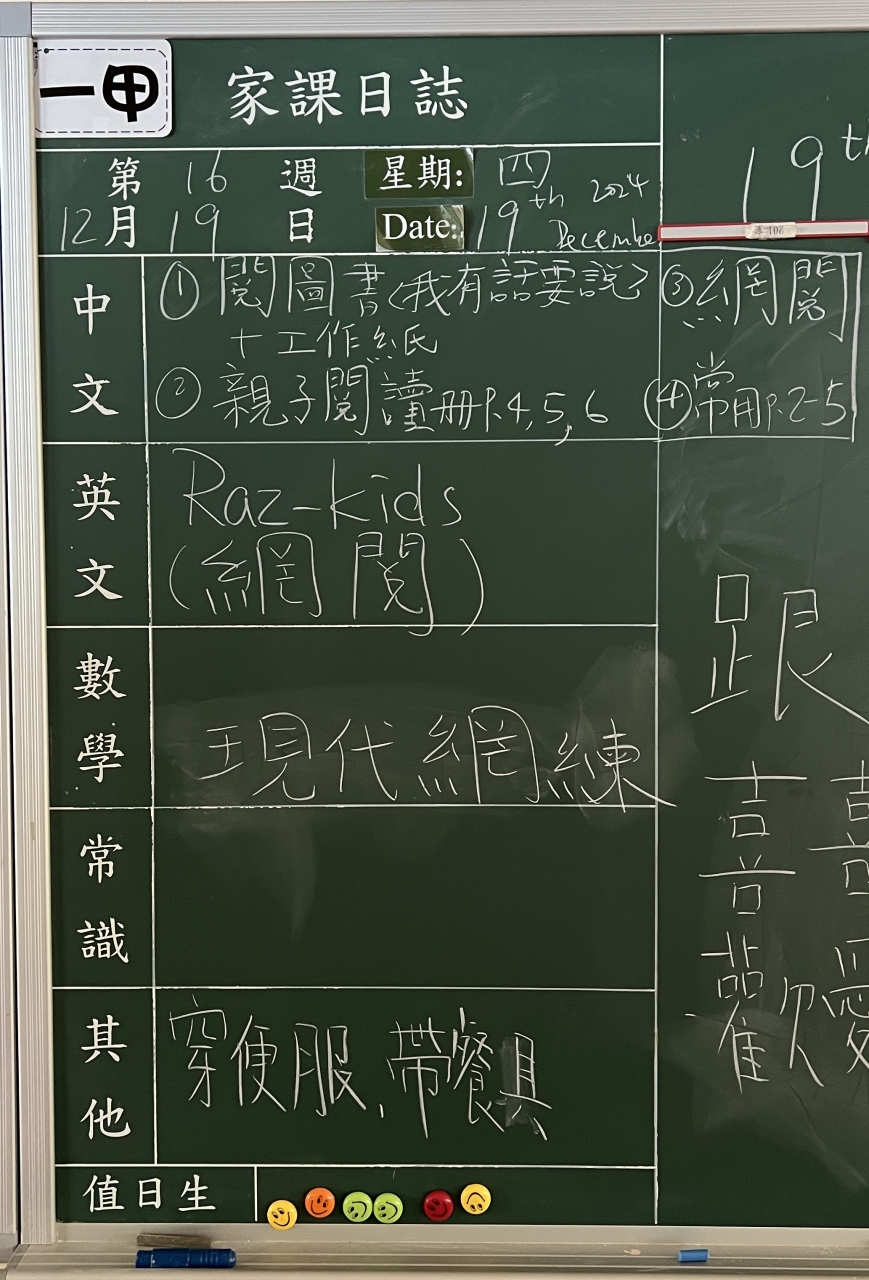 一甲
家課日誌
第 16 週 星期: 四
12月 19 日 Date: 19th December 2024
19th
中文
① 閱圖書<我有話要說>
+工作紙
② 親子閱讀册P.4,5,6
③ 網閱
④ 常用P.2-5
英文
Raz-kids
(網閱)
數學
現代網練
常識
其他
穿便服、帶餐具
值日生
跟
喜 喜
歡 愛